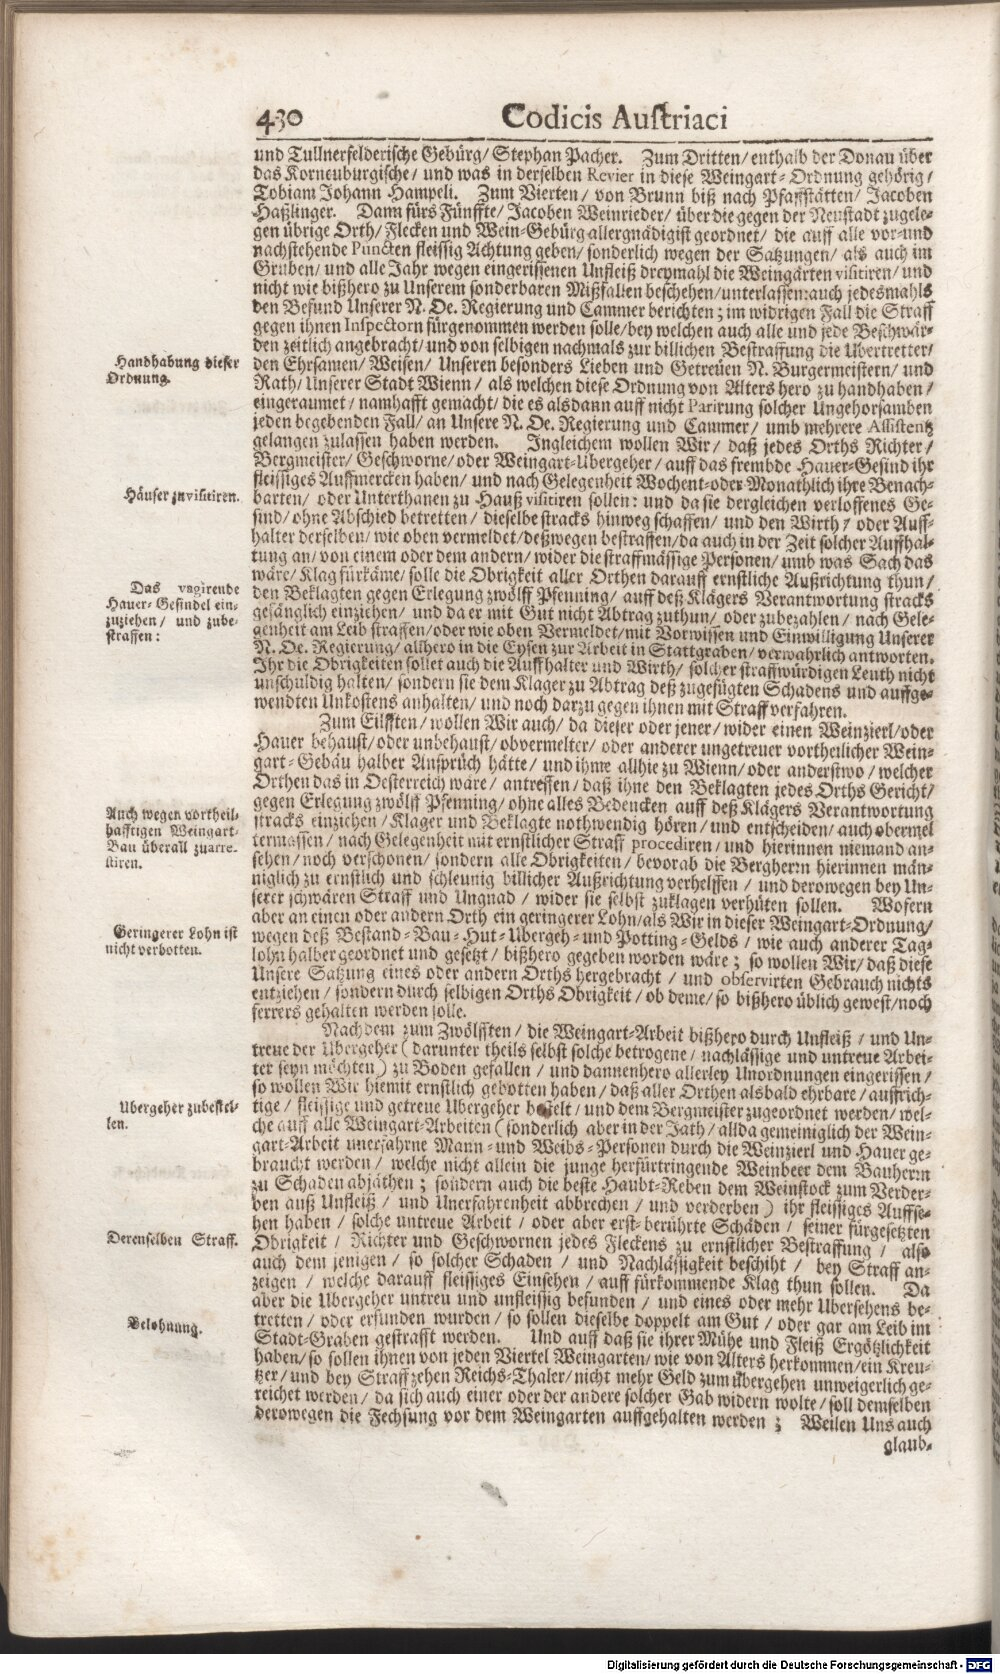 430 Codicis Austriaci
und Tullnerfelderische Gebürg/ Stephan Pacher. Zum Dritten/ enthalb der Donau über
das Korneuburgische/ und was in derselben Revier in diese Weingart-Ordnung gehörig/
Tobiam Johann Hampeli. Zum Vierten/ von Brunn biß nach Pfaffstätten/ Jacoben
Haßlinger. Dann fürs Fünffte/ Jacoben Weinrieder/ über die gegen der Neustadt zugele-
gen übrige Orth/ Flecken und Wein-Gebürg allergnädigist geordnet/ die auff alle vor- und
nachstehende Puncten fleissig Achtung geben/ sonderlich wegen der Satzungen/ als auch im
Gruben/ und alle Jahr wegen eingerissenen Unfleiß dreymahl die Weingärten visitiren/ und
nicht wie bißhero zu Unserem sonderbaren Mißfallen beschehen/ unterlassen: auch jedesmahls
den Befund Unserer N. Oe. Regierung und Cammer berichten; im widrigen Fall die Straff
gegen ihnen Inspectorn fürgenommen werden solle/ bey welchen auch alle und jede Beschwär-
den zeitlich angebracht/ und von selbigen nachmals zur billichen Bestraffung die Ubertretter/
Handhabung dieser
Ordnung.
den Ehrsamen/ Weisen/ Unseren besonders Lieben und Getreuen N. Burgermeistern/ und
Rath/ Unserer Stadt Wienn/ als welchen diese Ordnung von Alters hero zu handhaben/
eingeraumet/ namhafft gemacht/ die es alsdann auff nicht Parirung solcher Ungehorsamben
jeden begebenden Fall/ an Unsere N. Oe. Regierung und Cammer/ umb mehrere Assistentz
gelangen zulassen haben werden. Ingleichem wollen Wir/ daß jedes Orths Richter/
Bergmeister/ Geschworne/ oder Weingart-Ubergeher/ auff das frembde Hauer-Gesind ihr
fleissiges Auffmercken haben/ und nach Gelegenheit Wochent- oder Monathlich ihre Benach-
Häuser zu visitiren.
barten/ oder Unterthanen zu Hauß visitiren sollen: und da sie dergleichen verloffenes Ge-
sind/ ohne Abschied betretten/ dieselbe stracks hinweg schaffen/ und den Wirth/ oder Auff-
halter derselben/ wie oben vermeldet/ deßwegen bestraffen/ da auch in der Zeit solcher Auffhal-
tung an/ von einem oder dem andern/ wider die straffmässige Personen/ umb was Sach das
wäre/ Klag fürkäme/ solle die Obrigkeit aller Orthen darauff ernstliche Außrichtung thun/
Das vagirende
Hauer-Gesindel ein-
zuziehen/ und zube-
straffen:
den Beklagten gegen Erlegung zwölff Pfenning/ auff deß Klägers Verantwortung stracks
gefänglich einziehen/ und da er mit Gut nicht Abtrag zuthun/ oder zubezahlen/ nach Gele-
genheit am Leib straffen/ oder wie oben Vermeldet/ mit Vorwissen und Einwilligung Unserer
N. Oe. Regierung/ allhero in die Eysen zur Arbeit in Stattgraben/ verwahrlich antworten.
Ihr die Obrigkeiten sollet auch die Auffhalter und Wirth/ solcher straffwürdigen Leuth nicht
unschuldig halten/ sondern sie dem Klager zu Abtrag deß zugefügten Schadens und auffge-
wendten Unkostens anhalten/ und noch darzu gegen ihnen mit Straff verfahren.
Zum Eilfften/ wollen Wir auch/ da dieser oder jener/ wider einen Weinzierl/ oder
Hauer behaust/ oder unbehaust/ obvermelter/ oder anderer ungetreuer vortheilicher Wein-
gart-Gebäu halber Ansprüch hätte/ und ihme allhie zu Wienn/ oder anderstwo/ welcher
Orthen das in Oesterreich wäre/ antreffen/ daß ihne den Beklagten jedes Orths Gericht/
Auch wegen vortheil-
hafftigen Weingart-
Bau überall zuarre-
stiren.
gegen Erlegung zwölff Pfenning/ ohne alles Bedencken auff deß Klägers Verantwortung
stracks einziehen/ Klager und Beklagte nothwendig hören/ und entscheiden/ auch obermel
termassen/ nach Gelegenheit mit ernstlicher Straff procediren/ und hierinnen niemand an-
sehen/ noch verschonen/ sondern alle Obrigkeiten/ bevorab die Bergherrn hierinnen män-
niglich zu ernstlich und schleunig billicher Außrichtung verhelffen/ und derowegen bey Un-
serer schwären Straff und Ungnad/ wider sie selbst zuklagen verhüten sollen. Wofern
aber an einen oder andern Orth ein geringerer Lohn/ als Wir in dieser Weingart-Ordnung/
Geringerer Lohn ist
nicht verbotten.
wegen deß Bestand-Bau-Hut-Ubergeh- und Potting-Gelds/ wie auch anderer Tag-
lohn halber geordnet und gesetzt/ bißhero gegeben worden wäre; so wollen Wir/ daß diese
Unsere Satzung eines oder andern Orths hergebracht/ und observirten Gebrauch nichts
entziehen/ sondern durch selbigen Orths Obrigkeit/ ob deme/ so bißhero üblich gewest/ noch
ferrers gehalten werden solle.
Nachdem zum Zwölfften/ die Weingart-Arbeit bißhero durch Unfleiß/ und Un-
treue der Ubergeher (darunter theils selbst solche betrogene/ nachlässige und untreue Arbei-
ter seyn möchten) zu Boden gefallen/ und dannenhero allerley Unordnungen eingerissen/
so wollen Wir hiemit ernstlich gebotten haben/ daß aller Orthen alsbald ehrbare/ auffrich-
Ubergeher zubestel-
len.
tige/ fleissige und getreue Ubergeher bestelt/ und dem Bergmeister zugeordnet werden/ wel-
che auff alle Weingart-Arbeiten (sonderlich aber in der Jath/ allda gemeiniglich der Wein-
gart-Arbeit unerfahrne Mann- und Weibs-Personen durch die Weinzierl und Hauer ge-
braucht werden/ welche nicht allein die junge herfürtringende Weinbeer dem Bauherrn
zu Schaden abjäthen; sondern auch die beste Haubt-Reben dem Weinstock zum Verder-
ben auß Unfleiß/ und Unerfahrenheit abbrechen/ und verderben) ihr fleissiges Auffse-
hen haben/ solche untreue Arbeit/ oder aber erst-berührte Schäden/ seiner fürgesetzten
Derenselben Straff.
Obrigkeit/ Richter und Geschwornen jedes Fleckens zu ernstlicher Bestraffung/ also
auch dem jenigen/ so solcher Schaden/ und Nachlässigkeit beschiht/ bey Straff an-
zeigen/ welche darauff fleissiges Einsehen/ auff fürkommende Klag thun sollen. Da
aber die Ubergeher untreu und unfleissig befunden/ und eines oder mehr Ubersehens be-
tretten/ oder erfunden wurden/ so sollen dieselbe doppelt am Gut/ oder gar am Leib im
Belohnung.
Stadt-Graben gestrafft werden. Und auff daß sie ihrer Mühe und Fleiß Ergötzlichkeit
haben/ so sollen ihnen von jeden Viertel Weingarten/ wie von Alters herkommen/ ein Kreu-
tzer/ und bey Straff zehen Reichs-Thaler/ nicht mehr Geld zum übergehen unweigerlich ge-
reichet werden/ da sich auch einer oder der andere solcher Gab widern wolte/ soll demselben
derowegen die Fechsung vor dem Weingarten auffgehalten werden; Weilen Uns auch
glaub-
Digitalisierung gefördert durch die Deutsche Forschungsgemeinschaft - DFG